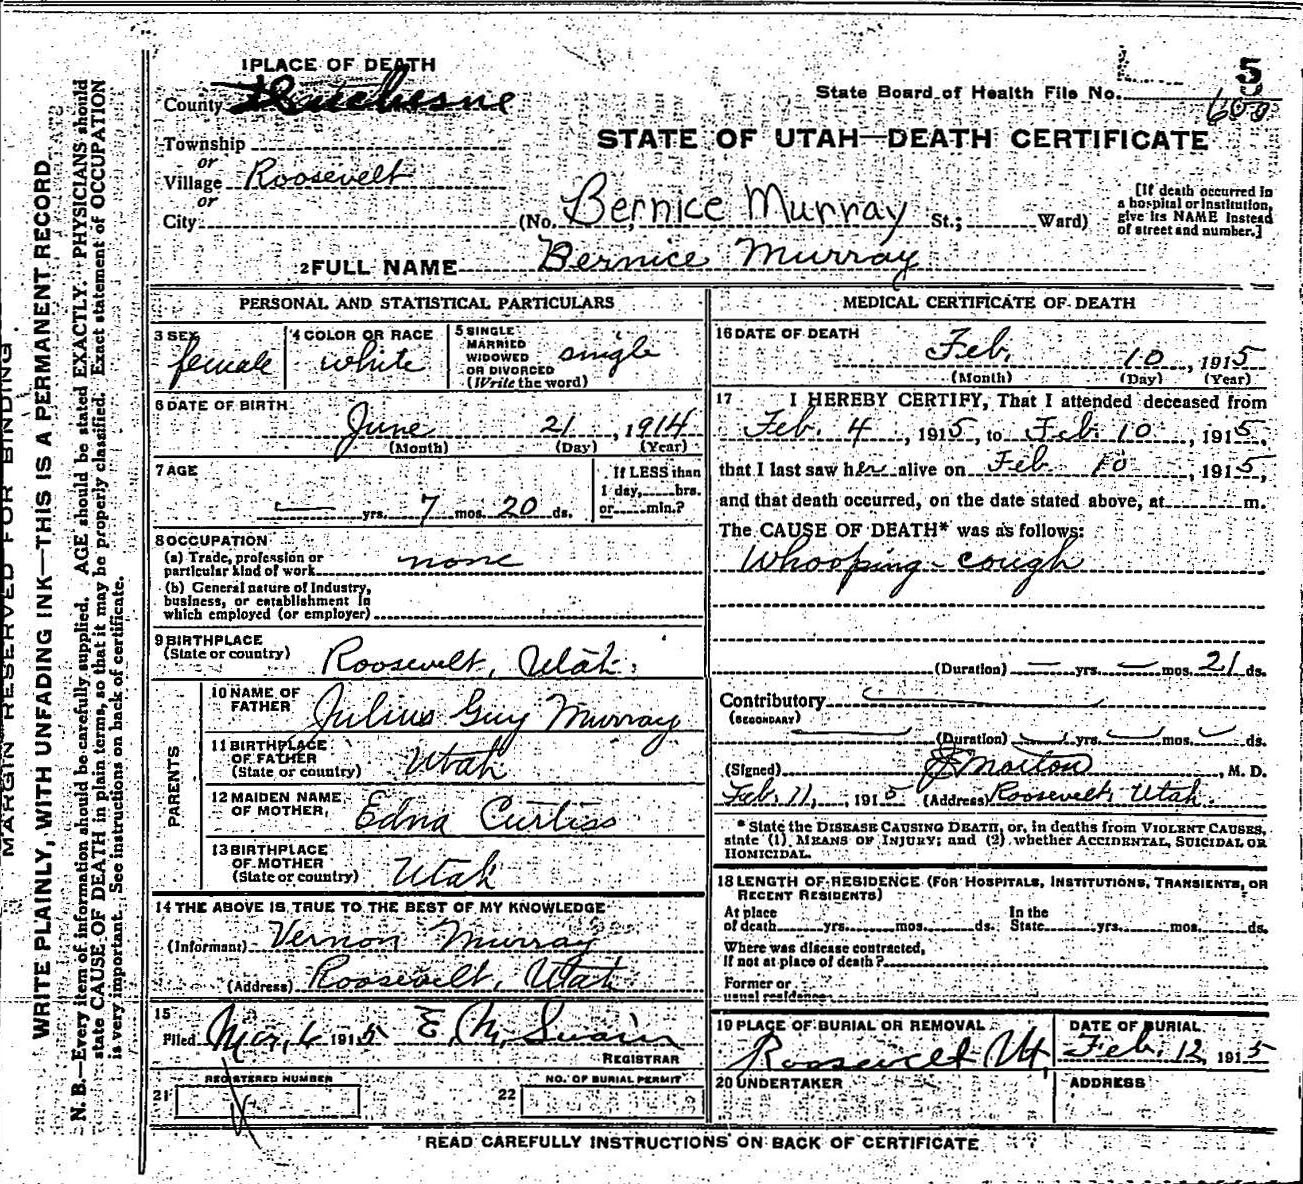 1 PLACE OF DEATH
County Duchesne
Township
or
Village Roosevelt
or
City
5
State Board of Health File No. 600
STATE OF UTAH—DEATH CERTIFICATE
(No. Bernice Murray St.; Ward)
[If death occurred in
a hospital or institution,
give its NAME instead
of street and number.]
2 FULL NAME Bernice Murray
PERSONAL AND STATISTICAL PARTICULARS
3 SEX female
4 COLOR OR RACE white
5 SINGLE
MARRIED
WIDOWED
OR DIVORCED
(Write the word) single
6 DATE OF BIRTH
June 21, 1914
(Month) (Day) (Year)
7 AGE
— yrs. 7 mos. 20 ds.
If LESS than
1 day, hrs.
or min.?
8 OCCUPATION
(a) Trade, profession or
particular kind of work none
(b) General nature of Industry,
business, or establishment in
which employed (or employer)
9 BIRTHPLACE
(State or country) Roosevelt, Utah.
PARENTS
10 NAME OF
FATHER Julius Guy Murray
11 BIRTHPLACE
OF FATHER
(State or country) Utah
12 MAIDEN NAME
OF MOTHER Edna Curtiss
13 BIRTHPLACE
OF MOTHER
(State or country) Utah
14 THE ABOVE IS TRUE TO THE BEST OF MY KNOWLEDGE
(Informant) Vernon Murray
(Address) Roosevelt, Utah
15
Filed Mar, 6 1915 E. M. Swain
REGISTRAR
REGISTERED NUMBER
21
NO. OF BURIAL PERMIT
22
MEDICAL CERTIFICATE OF DEATH
16 DATE OF DEATH
Feb. 10, 1915
(Month) (Day) (Year)
17 I HEREBY CERTIFY, That I attended deceased from
Feb. 4, 1915, to Feb. 10, 1915,
that I last saw her alive on Feb. 10, 1915,
and that death occurred, on the date stated above, at m.
The CAUSE OF DEATH* was as follows:
Whooping-cough
(Duration) — yrs. — mos. 21 ds.
Contributory —
(SECONDARY)
— (Duration) — yrs. — mos. — ds.
(Signed) Morton, M. D.
Feb. 11, 1915 (Address) Roosevelt, Utah.
* State the DISEASE CAUSING DEATH, or, in deaths from VIOLENT CAUSES,
state (1) MEANS OF INJURY; and (2) whether ACCIDENTAL, SUICIDAL OR
HOMICIDAL.
18 LENGTH OF RESIDENCE (FOR HOSPITALS, INSTITUTIONS, TRANSIENTS, OR
RECENT RESIDENTS)
At place
of death yrs. mos. ds.
In the
State yrs. mos. ds.
Where was disease contracted,
If not at place of death?
Former or
usual residence
19 PLACE OF BURIAL OR REMOVAL
Roosevelt Ut,
DATE OF BURIAL
Feb. 12, 1915
20 UNDERTAKER
ADDRESS
READ CAREFULLY INSTRUCTIONS ON BACK OF CERTIFICATE
MARGIN RESERVED FOR BINDING
WRITE PLAINLY, WITH UNFADING INK—THIS IS A PERMANENT RECORD
N. B.—Every item of information should be carefully supplied. AGE should be stated EXACTLY. PHYSICIANS should
state CAUSE OF DEATH in plain terms, so that it may be properly classified. Exact statement of OCCUPATION
is very important. See instructions on back of certificate.